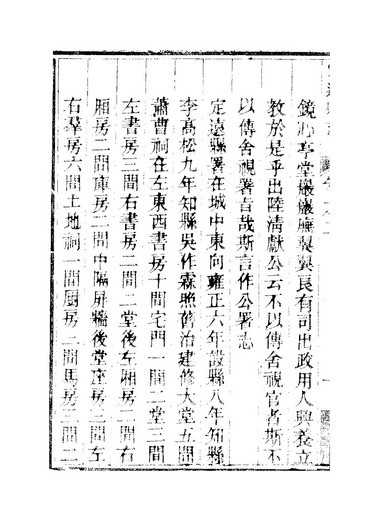 鏡沁亭堂巖巖廡翼翼良有司出政用人興養立
教於是乎出陸清獻公云不以傳舍視官者斯不
以傳舍視署旨哉斯言作公署志
定遠縣署在城中東向雍正六年設縣八年知縣
李高松九年知縣吳作霖照舊治建修大堂五間
蕭曹祠在左東西書房十間宅門一間二堂三間
左書房三間右書房二間二堂後左廂房二間右
廂房二間庫房二間中隔屏牆後堂座房三間左
右羣房六間土地祠一間厨房二間馬房二間二